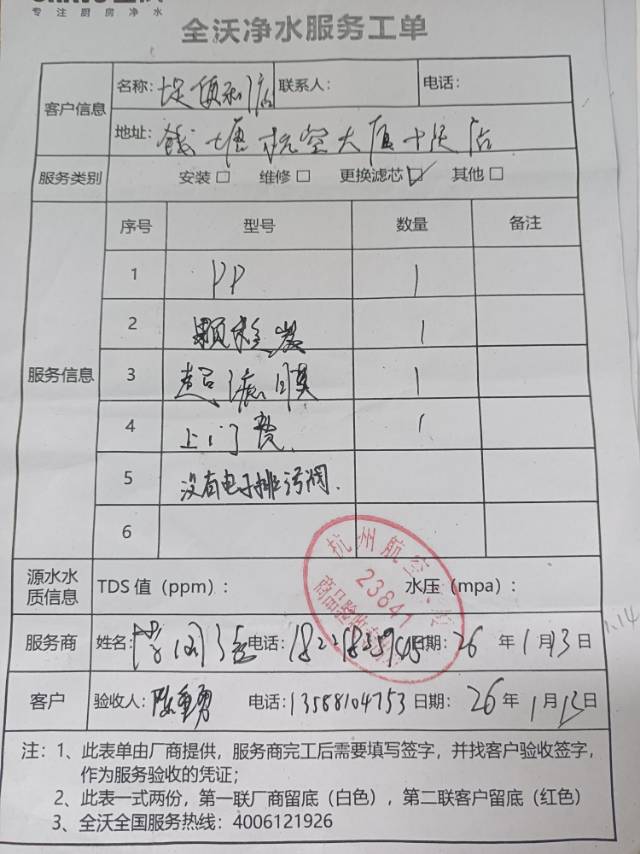 专注厨房净水
全沃净水服务工单
客户信息
名称: 便利店 联系人: 电话:
地址: 钱塘航空大厦十足店
服务类别 安装□ 维修□ 更换滤芯☑ 其他□
服务信息
序号 型号 数量 备注
1 PP 1
2 颗粒炭 1
3 超滤膜 1
4 上门费 1
5 没有电子排污阀.
6
杭州航空
23841
商品验收
源水水质信息 TDS 值 (ppm): 水压 (mpa):
服务商 姓名: 电话: 日期: 26 年 1 月 13 日
客户 验收人: 陈重勇 电话: 13588104753 日期: 26 年 1 月 13 日
1.14
注: 1、此表单由厂商提供，服务商完工后需要填写签字，并找客户验收签字，
作为服务验收的凭证；
2、此表一式两份，第一联厂商留底（白色），第二联客户留底（红色）
3、全沃全国服务热线: 4006121926